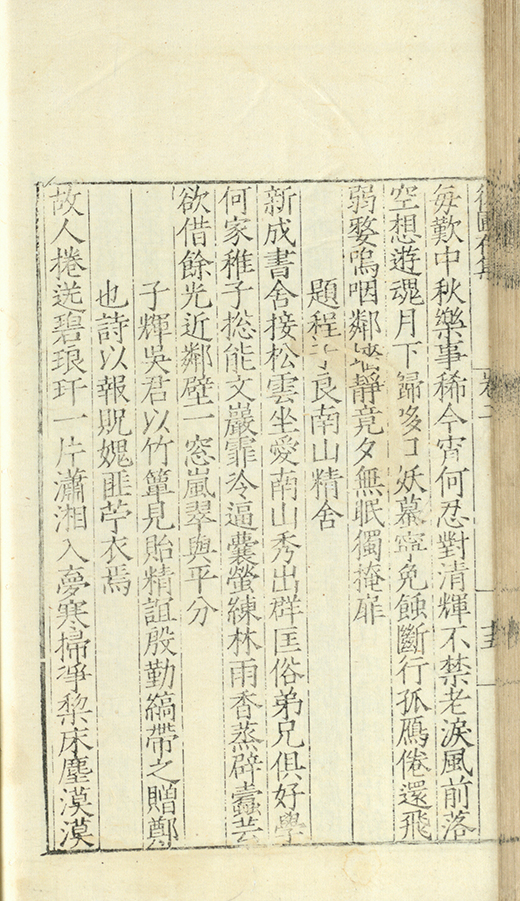 每歎中秋樂事稀今宵何忍對清輝不禁老淚風前落
空想遊魂月下歸哆口妖蟇寧免蝕斷行孤鴈倦還飛
弱嫠嗚咽鄰墻靜竟夕無眠獨掩扉
題程良南山精舍
新成書舍接松雲坐愛南山秀出群匡俗弟兄俱好學
何家稚子捴能文巖霏冷逼囊螢練林雨香蒸辟蠹芸
欲借餘光近鄰壁一窓嵐翠與平分
子輝吳君以竹簟見貽精詛殷勤縞帶之贈鄭
也詩以報貺媿匪苧衣焉
故人捲送碧琅玕一片瀟湘入夢寒掃淨棃床塵漠漠